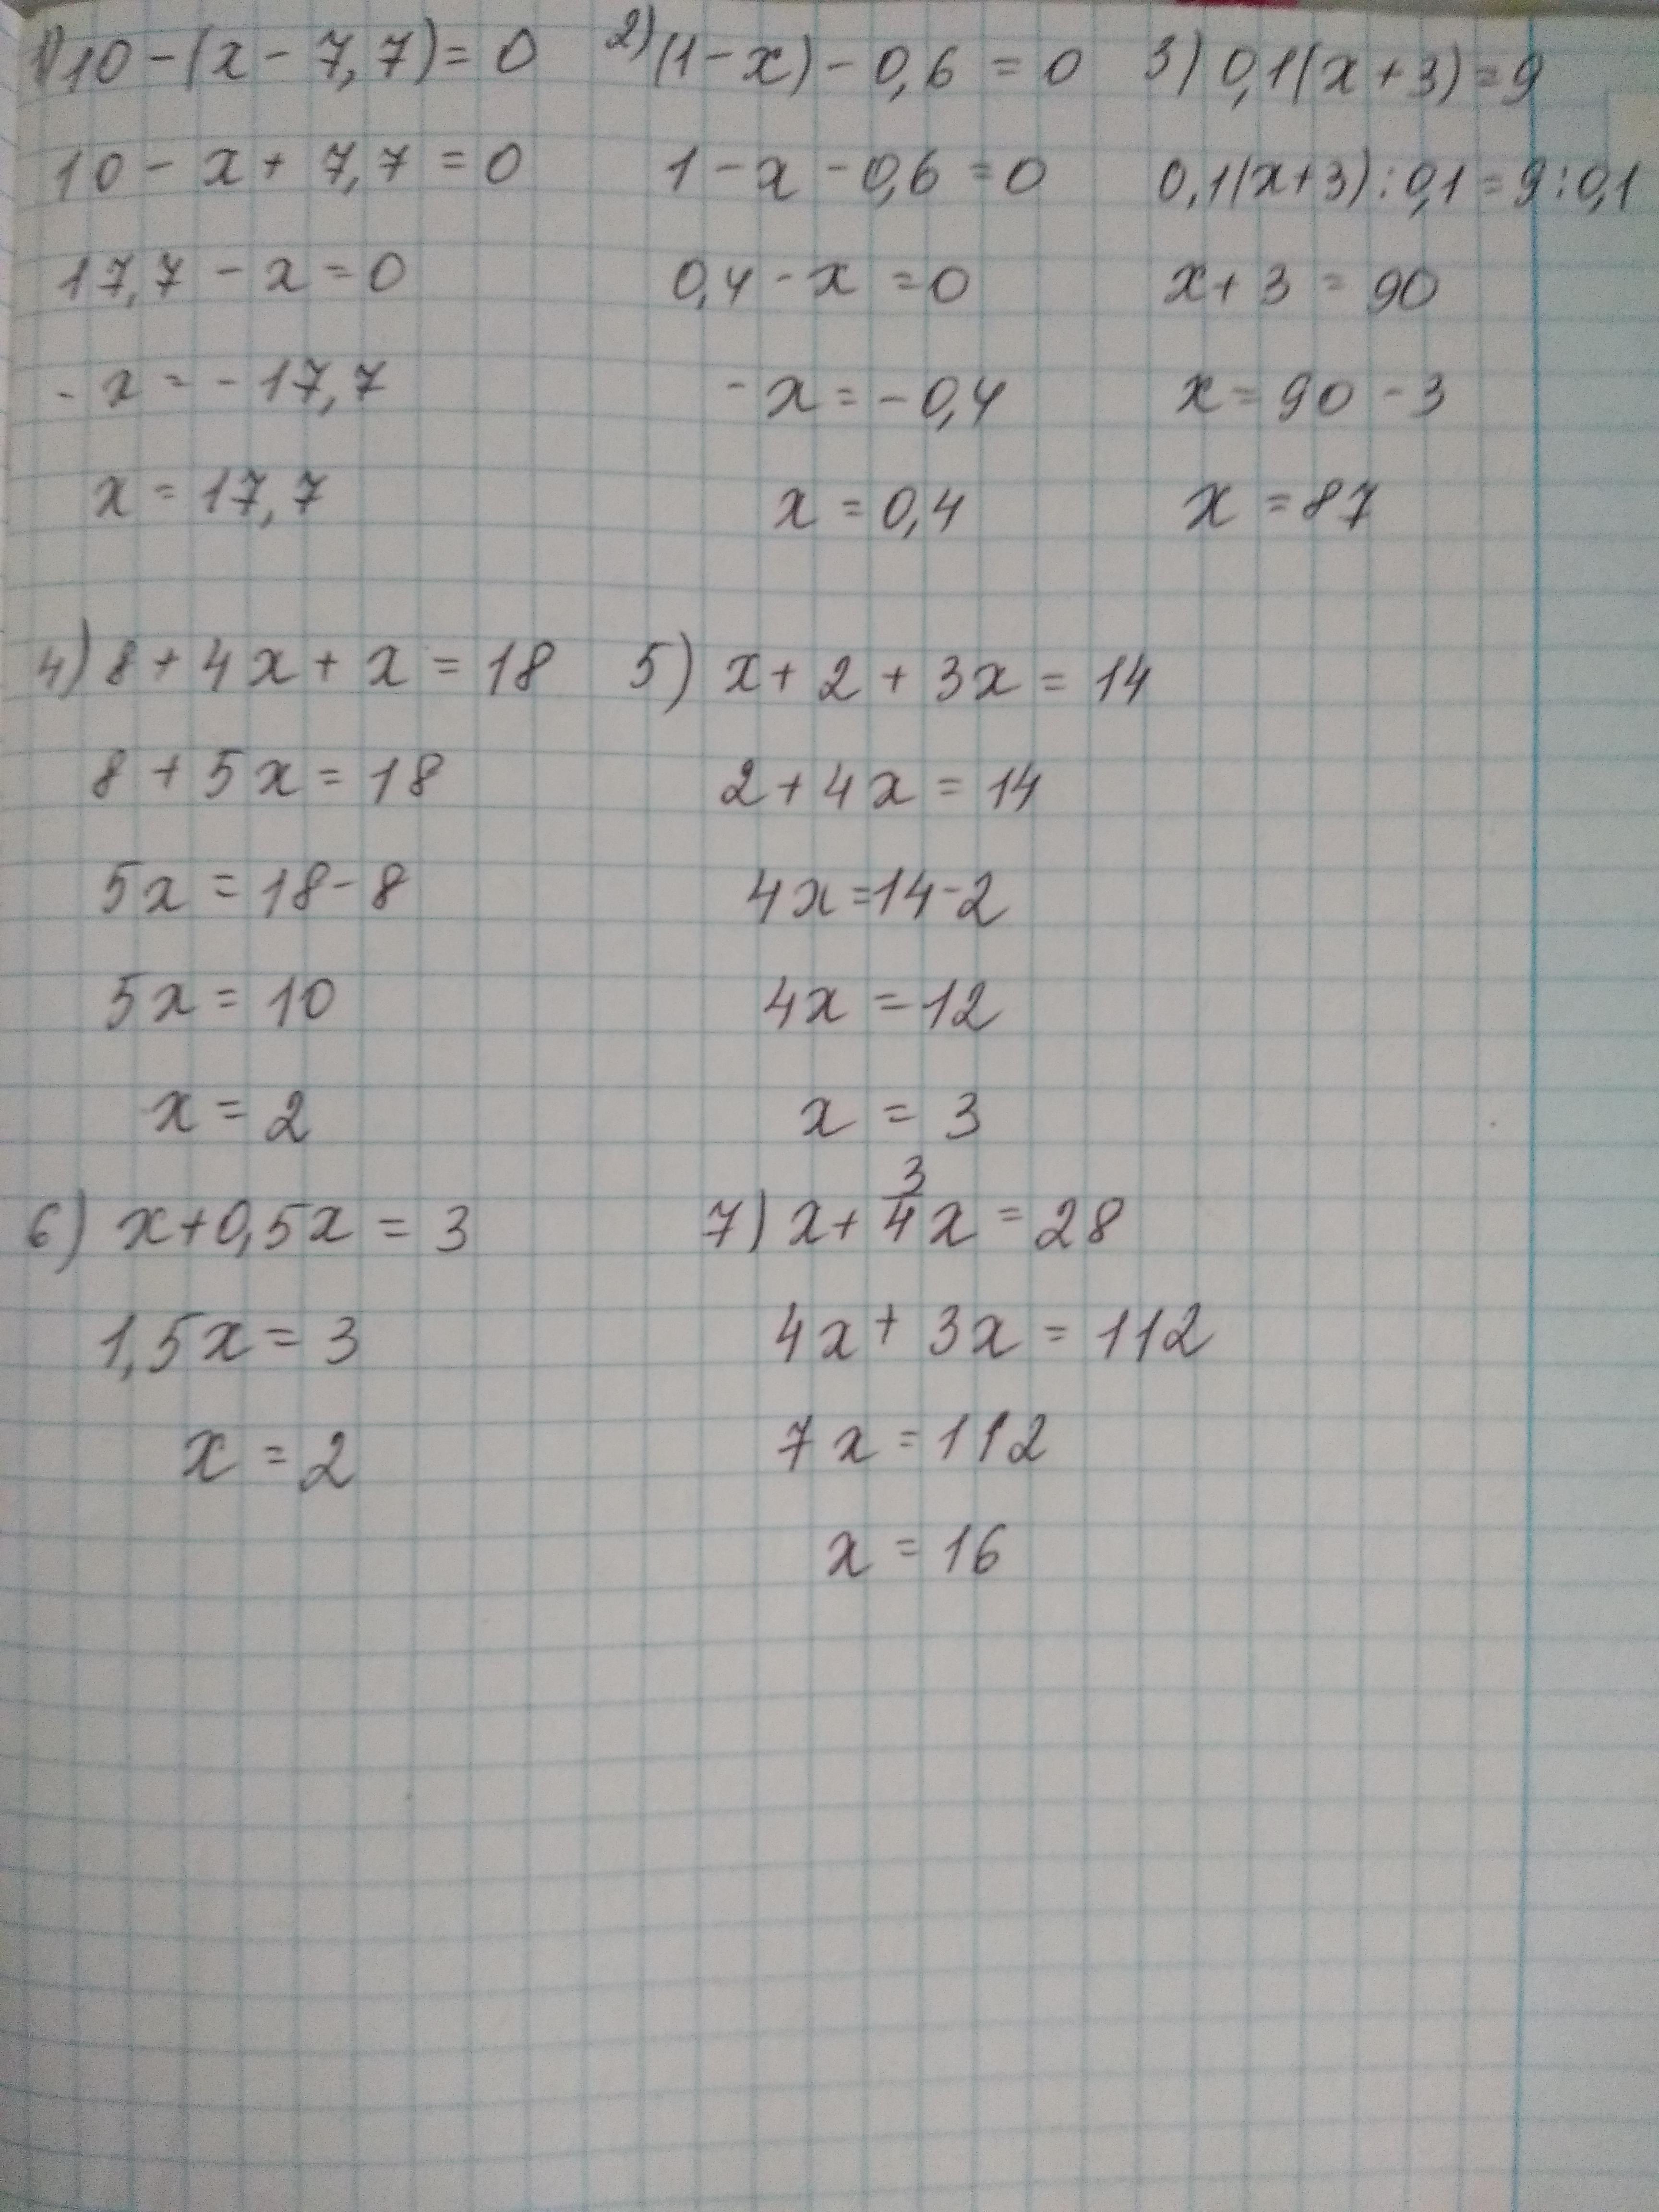 1) 10 - (x - 7,7) = 0
10 - x + 7,7 = 0
17,7 - x = 0
- x = - 17,7
x = 17,7
2) (1 - x) - 0,6 = 0
1 - x - 0,6 = 0
0,4 - x = 0
- x = - 0,4
x = 0,4
3) 0,1(x + 3) = 9
0,1(x+3) : 0,1 = 9 : 0,1
x + 3 = 90
x = 90 - 3
x = 87
4) 8 + 4x + x = 18
8 + 5x = 18
5x = 18 - 8
5x = 10
x = 2
5) x + 2 + 3x = 14
2 + 4x = 14
4x = 14 - 2
4x = 12
x = 3
6) x + 0,5x = 3
1,5x = 3
x = 2
7) x + 3/4 x = 28
4x + 3x = 112
7x = 112
x = 16